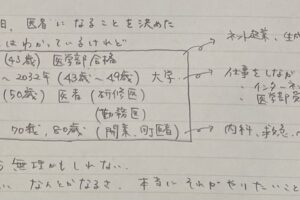 日、医者になることを決めた
はわかっているけれど
(43歳) 医学部合格
～2032年 (43歳～49歳) 大学
(50歳) 医者 (研修医)
(勤務医)
70歳、80歳 (開業、町医者)
ネット起業、生
仕事をしなが
・インターネ
・医学部
内科、救急、
無理かもしれない
なんとかなるさ、本当にそれがやりたいこと